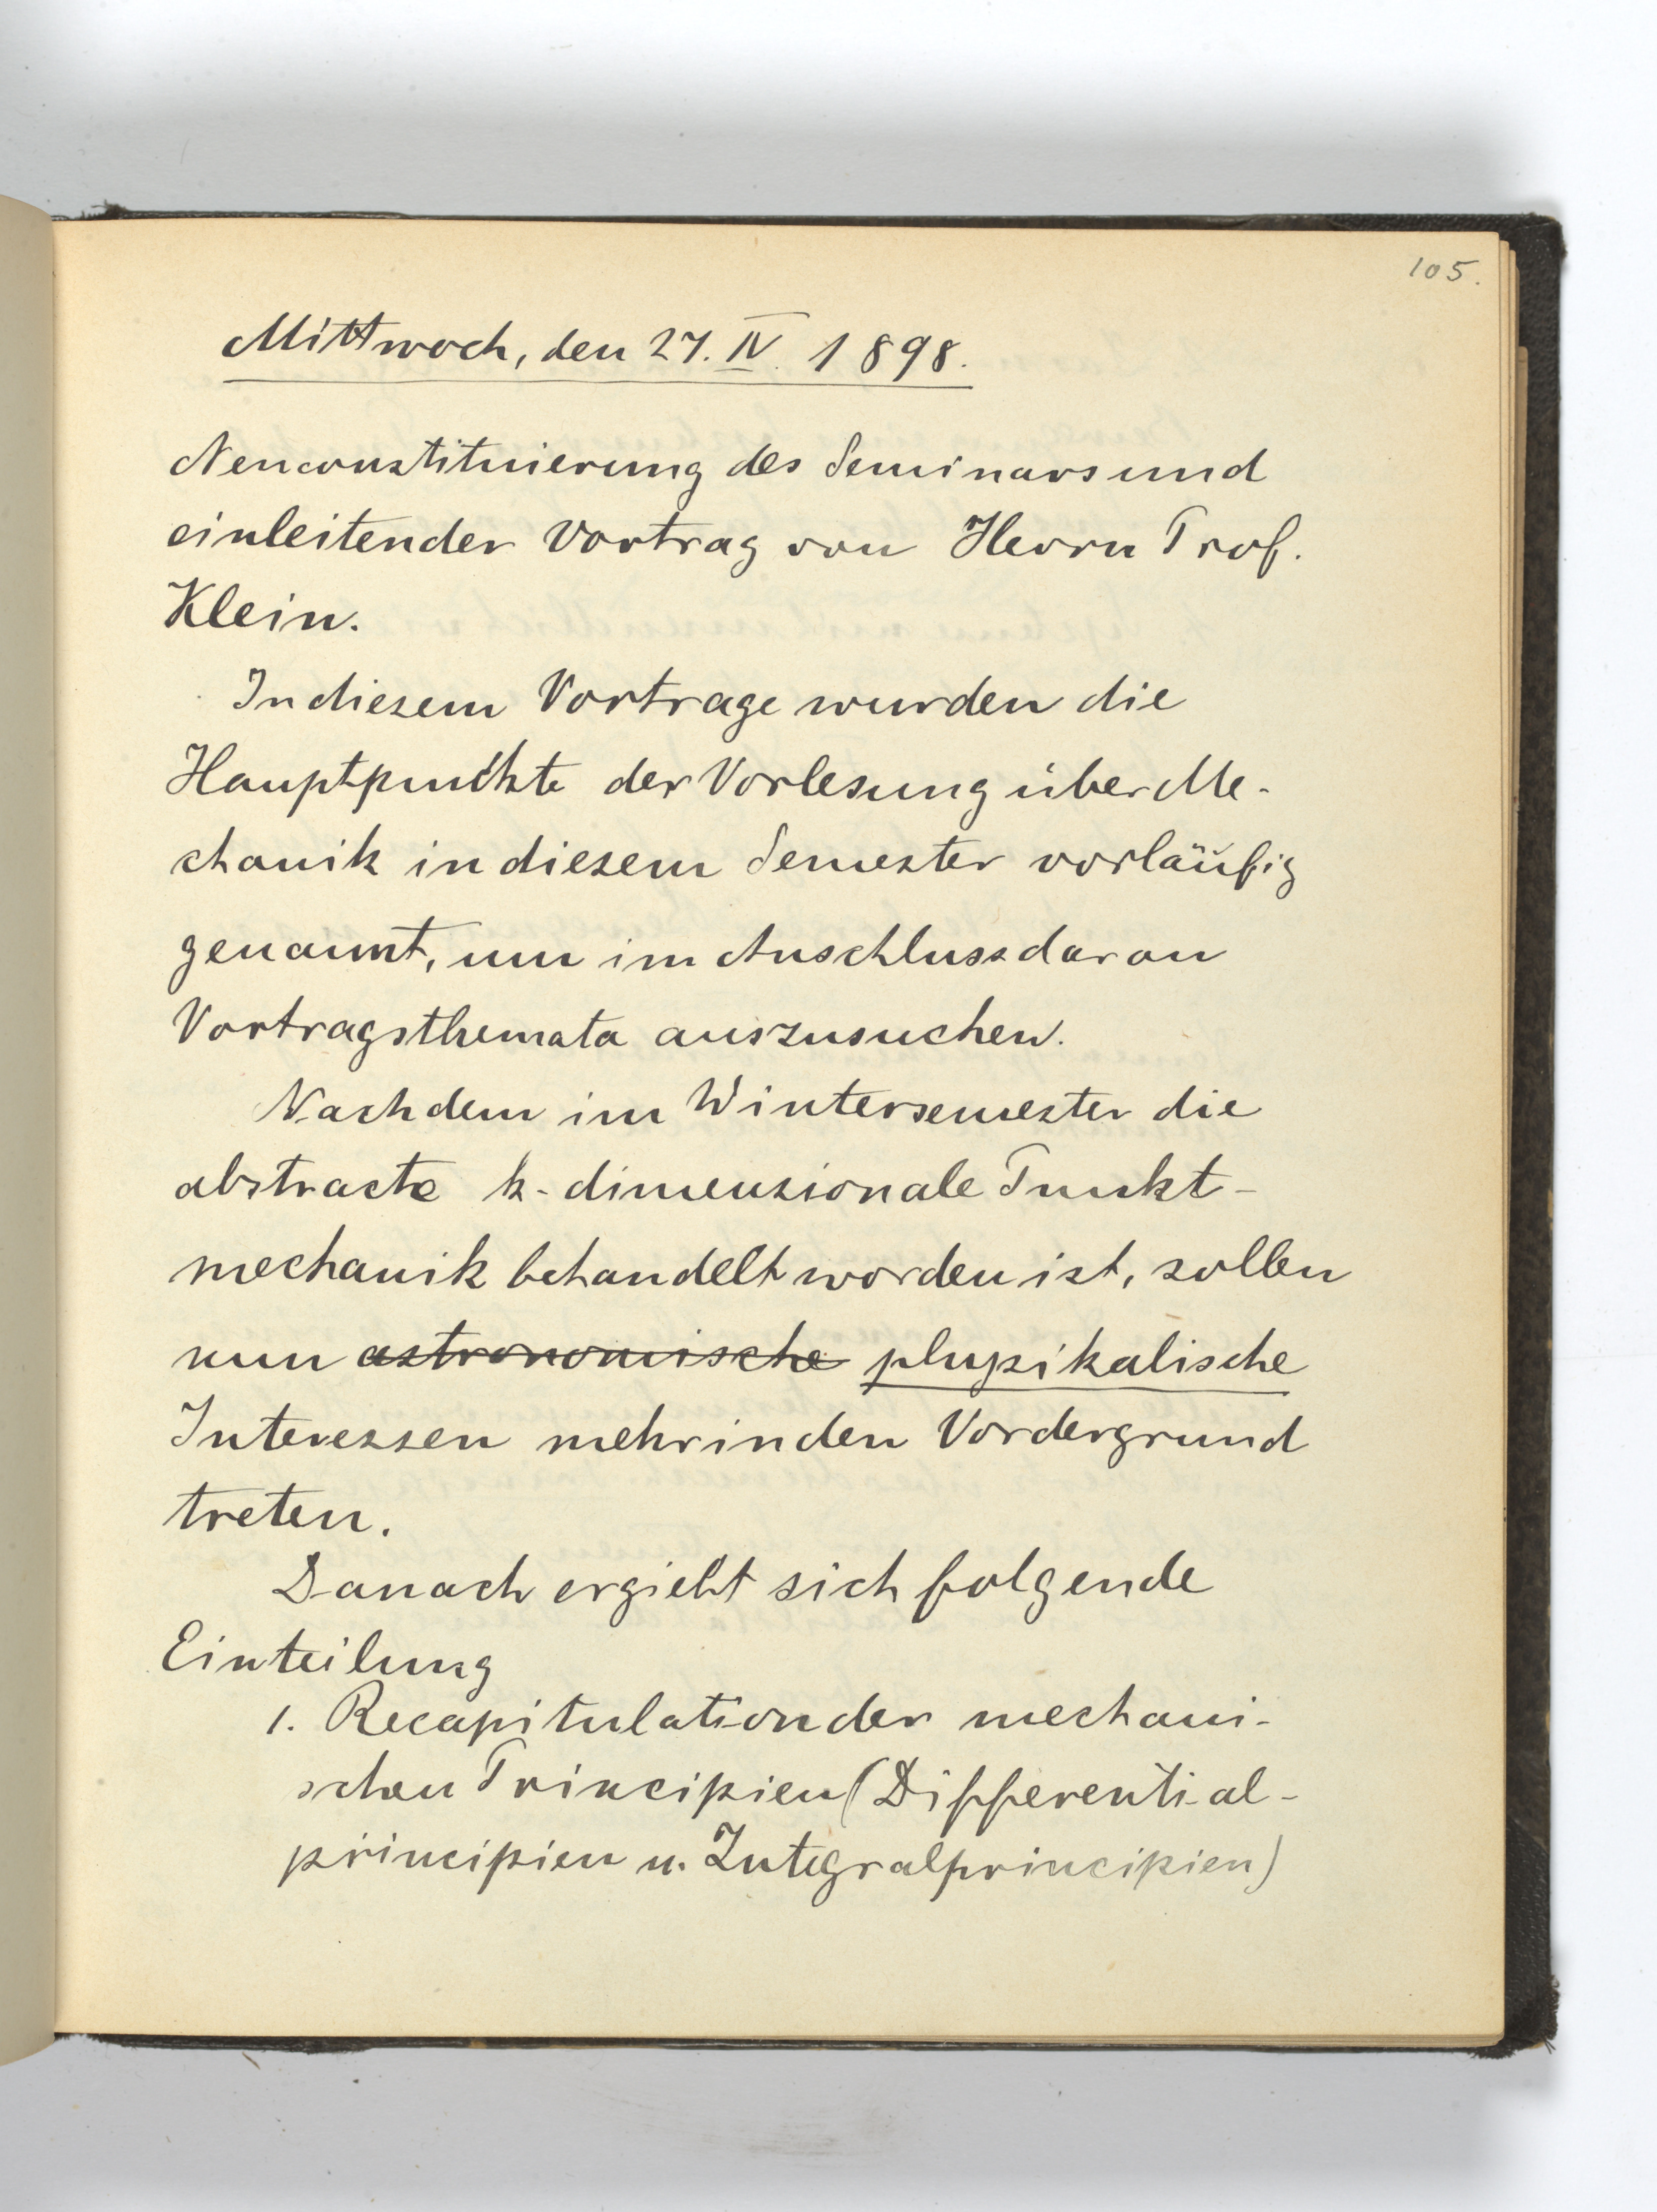 105.
Mittwoch, den 27. IV. 1898.
Neuconstituierung des Seminars und
einleitender Vortrag von Herrn Prof.
Klein.
In diesem Vortrage wurden die
Hauptpunkte der Vorlesung über Me-
chanik in diesem Semester vorläufig
genannt, um im Anschluss daran
Vortragsthemata auszusuchen.
Nachdem im Wintersemester die
abstracte k-dimensionale Punkt-
mechanik behandelt worden ist, sollen
nun astronomische physikalische
Interessen mehr in den Vordergrund
treten.
Danach ergiebt sich folgende
Einteilung
1. Recapitulation der mechani-
schen Principien (Differential-
principien u. Integralprincipien)